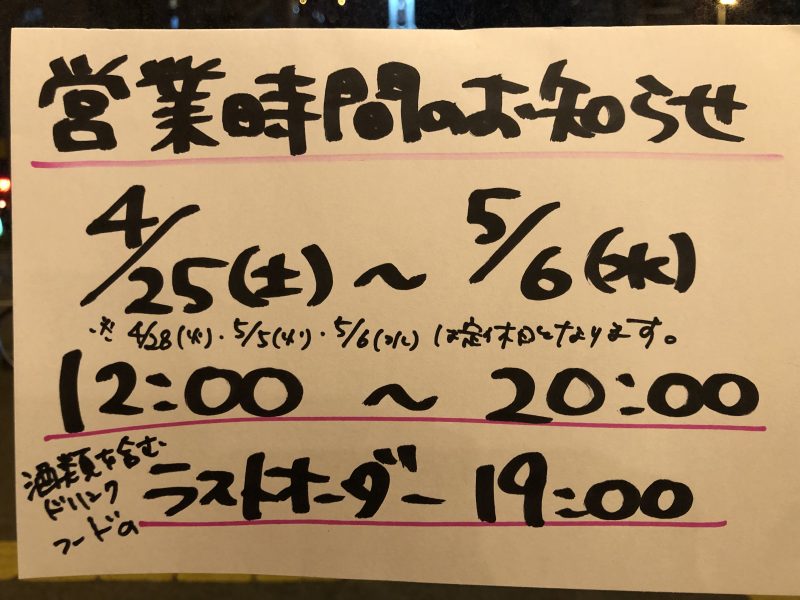 営業時間のお知らせ
4/25(土)～5/6(水)
※4/28(火)・5/5(火)・5/6(水)は定休日となります。
12:00～20:00
酒類を含む
ドリンク
フードの
ラストオーダー 19:00